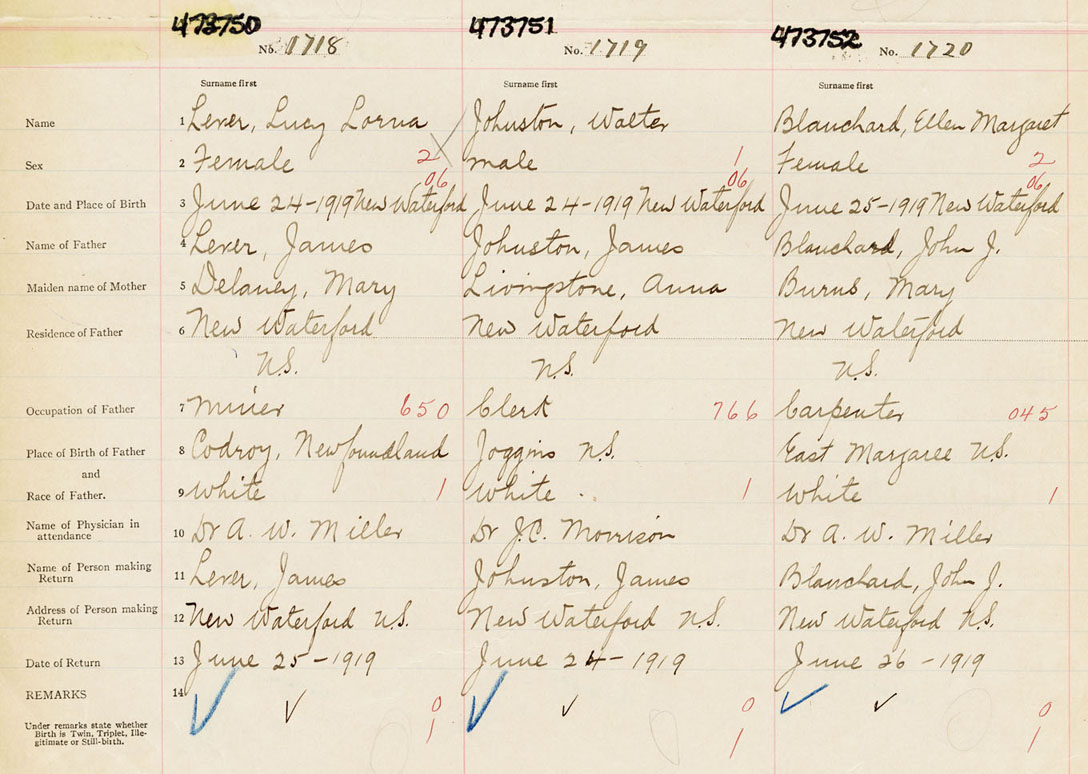 473750 473751 473752
No. 1718 No. 1719 No. 1720
Surname first Surname first Surname first
Name 1 Lever, Lucy Lorna Johnston, Walter Blanchard, Ellen Margaret
Sex 2 Female 2 male 1 Female 2
06 06 06
Date and Place of Birth 3 June 24-1919 New Waterford June 24-1919 New Waterford June 25-1919 New Waterford
Name of Father 4 Lever, James Johnston, James Blanchard, John J.
Maiden name of Mother 5 Delaney, Mary Livingstone, Anna Burns, Mary
Residence of Father 6 New Waterford New Waterford New Waterford
N.S. N.S. N.S.
Occupation of Father 7 Miner 650 Clerk 766 Carpenter 045
Place of Birth of Father 8 Codroy, Newfoundland Joggins N.S. East Margaree N.S.
and
Race of Father. 9 White 1 White 1 White 1
Name of Physician in
attendance 10 Dr A. W. Miller Dr J.C. Morrison Dr A. W. Miller
Name of Person making
Return 11 Lever, James Johnston, James Blanchard, John J.
Address of Person making
Return 12 New Waterford N.S. New Waterford N.S. New Waterford N.S.
Date of Return 13 June 25-1919 June 24-1919 June 26-1919
REMARKS 14
0 0 0
Under remarks state whether
Birth is Twin, Triplet, Ille-
gitimate or Still-birth.
1 1 1